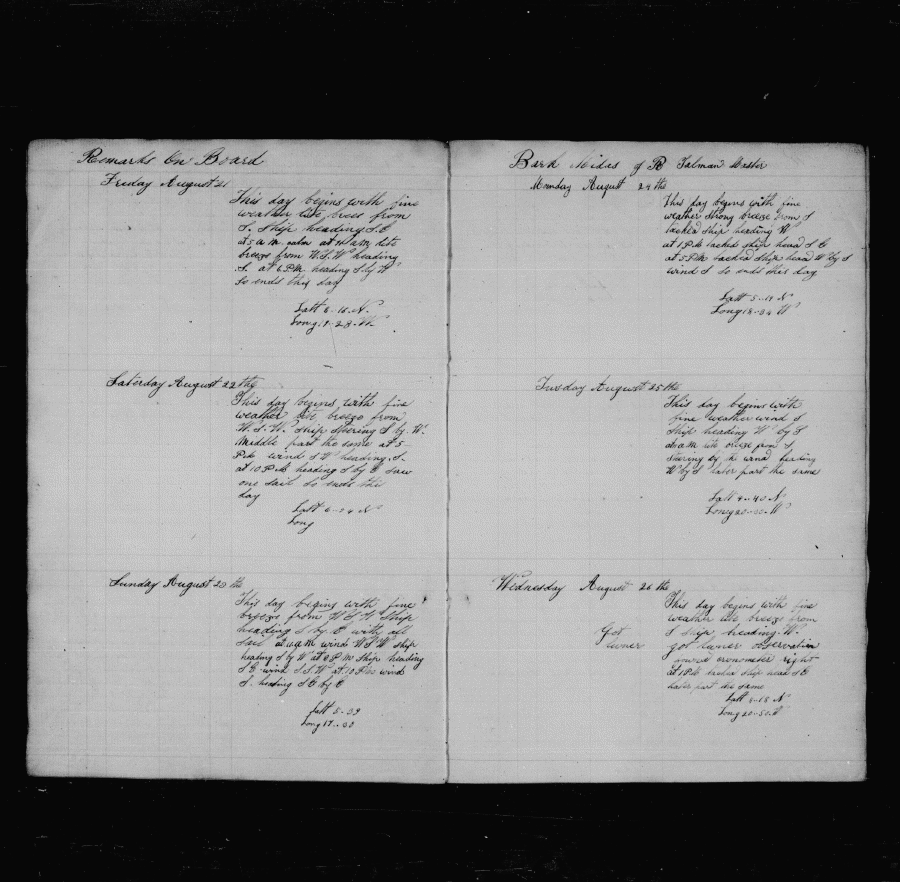 Remarks On Board
Friday August 21
This day begins with fine
weather lite brees from
S. Ship heading S.E
at 5 a m. calm at 10 a m lite
breeze from W.S.W heading
S. at 6 P.M. heading S by W
So ends this day
Latt 6-16 N.
Long. 1-28. W.
Saterday August 22 th
This day begins with fine
weather lite breeze from
W.S.W. ship stering S by W.
Middle part the same at 5
P.M. wind S W heading S.
at 10 P.M. heading S by E saw
one sail So ends this
day
Latt 6-24 N
Long
Sunday August 23 th
This day begins with fine
breeze from W S W Ship
heading S by E with all
sail at 10 a m wind W S W ship
heading S by W at 8 P.M ship heading
S E wind S.S.W. at 10 P.M. wind
S. heading S E by E
Latt 5-39
Long 17-30
Bark Midas of B Talman Master
Monday August 24 ths
This day begins with fine
weather strong breeze from S
tacked ship heading W
at 1 P.M. tacked ship head S E
at 5 P.M. tacked ship head W by S
wind S so ends this day
Latt 5-19 N
Long 18-34 W
Tusday August 25 ths
This day begins with
fine weather wind S
Ship heading W by S
a m lite breeze from S
stering by the wind
W by S later part the same
Latt 4-40 N
Long 20-00. W
Wednesday August 26 ths
Got
luner
This day begins with fine
weather lite breeze from
S ship heading. W.
got luner observation
cronometer right
at 1 P.M. tacked ship head S E
later part the same
Latt 4-18 N
Long 20-50. W